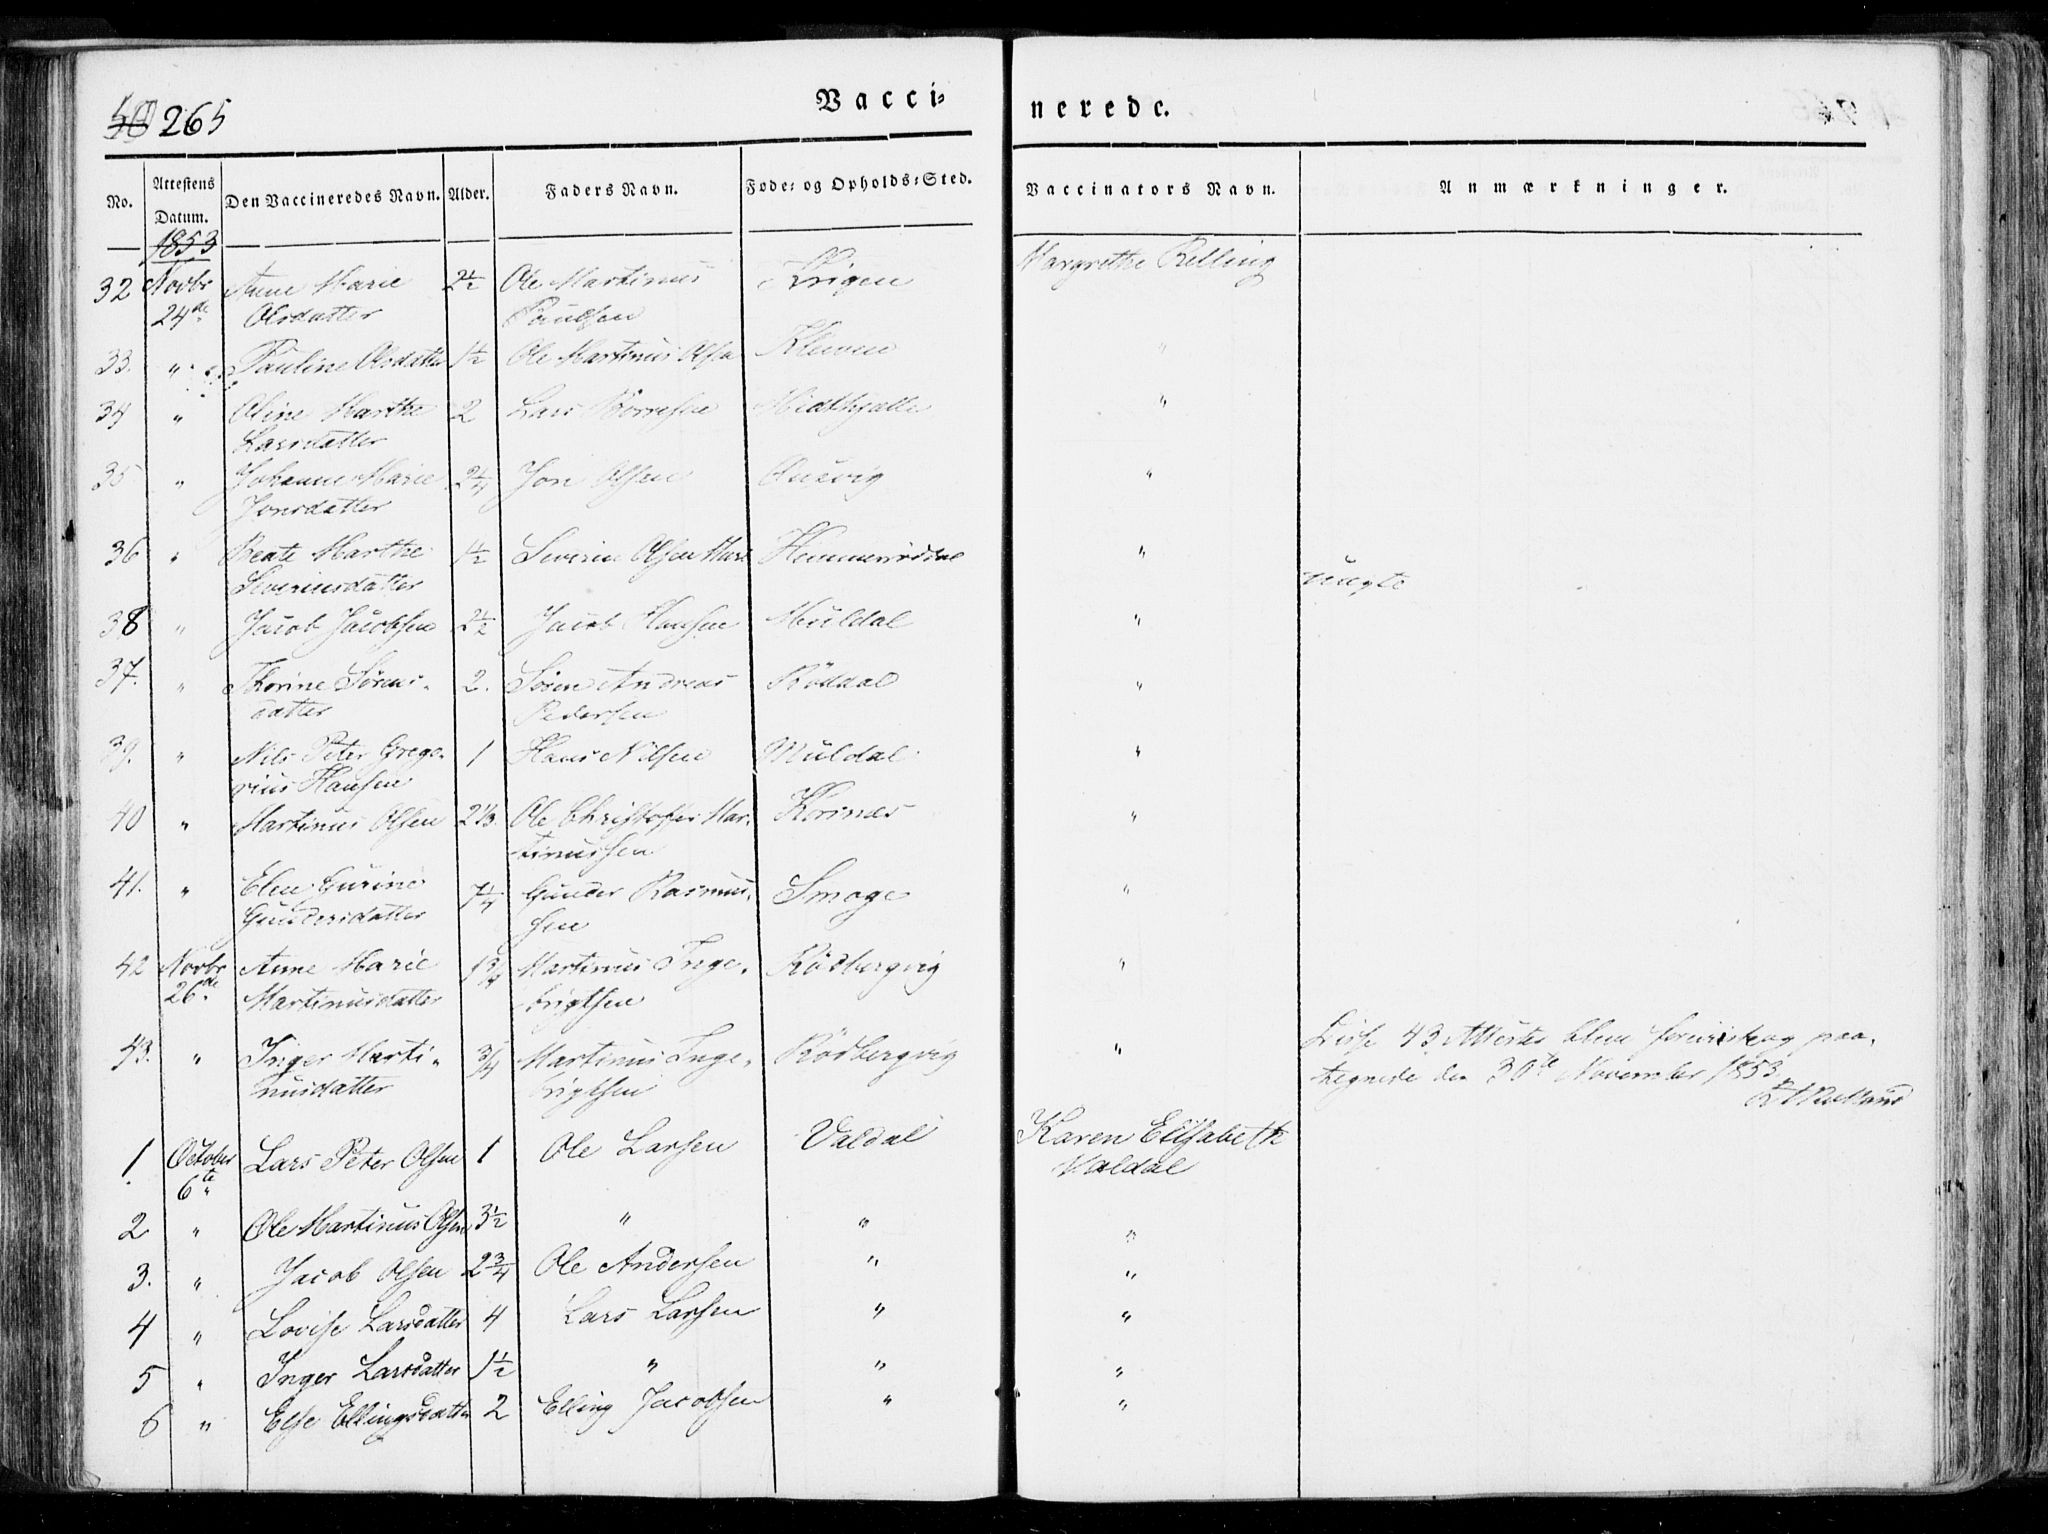 265
Vaccinerede.
No. Attestens Datum. Den Vaccineredes Navn. Alder. Faders Navn. Føde- og Opholds-Sted. Vaccinators Navn. Anmærkninger.
1853
32 Novbr 24de Anne Marie Olsdatter 2½ Ole Martinus Paulsen Krigen Margrethe Relling
33. " Pauline Olsdatter 1½ Ole Martinus Olsen Kleiven "
34 " Oline Marthe Larsdatter 2 Lars Børresen "
35 " Johanne Marie Jonsdatter 2¼ Jon Olsen "
36 " Beate Marthe Severinsdatter 1½ Severin Olsen "
uægte
38 " Jacob Jacobsen 2½ Jacob Hansen Muldal "
37. " Thorine Sørensdatter 2. Søren Andreas Pedersen Röddal "
39. " Nils Peter Gregorius Hansen 1 Hans Nilsen Muldal "
40 " Martinus Olsen 2⅓. Ole Christofer Martinussen Korsnæs "
41. " Elen Gurine Gundersdatter 7¼ Gunder Rasmussen Smoge "
42 Novbr 26de Anne Marie Martinusdatter 1¾ Martinus Ingebrigtsen Rödbergvig "
43. " Inger Martinusdatter ¾ Martinus Ingebrigtsen Rödbergvig "
Disse 43 Attester bleve foreviste og paategnede den 30te November 1853
1. October 6te Lars Peter Olsen 1 Ole Larsen Valdal Karen Elisabeth Valdal
2 " Ole Martinus Olsen 3½ " " "
3. " Jacob Olsen 2¾ Ole Andersen " "
4 " Lovise Larsdatter 4 Lars Larsen " "
5 " Inger Larsdatter 1½ " " "
6 " Else Ellingsdatter 2 Elling Jacobsen " "